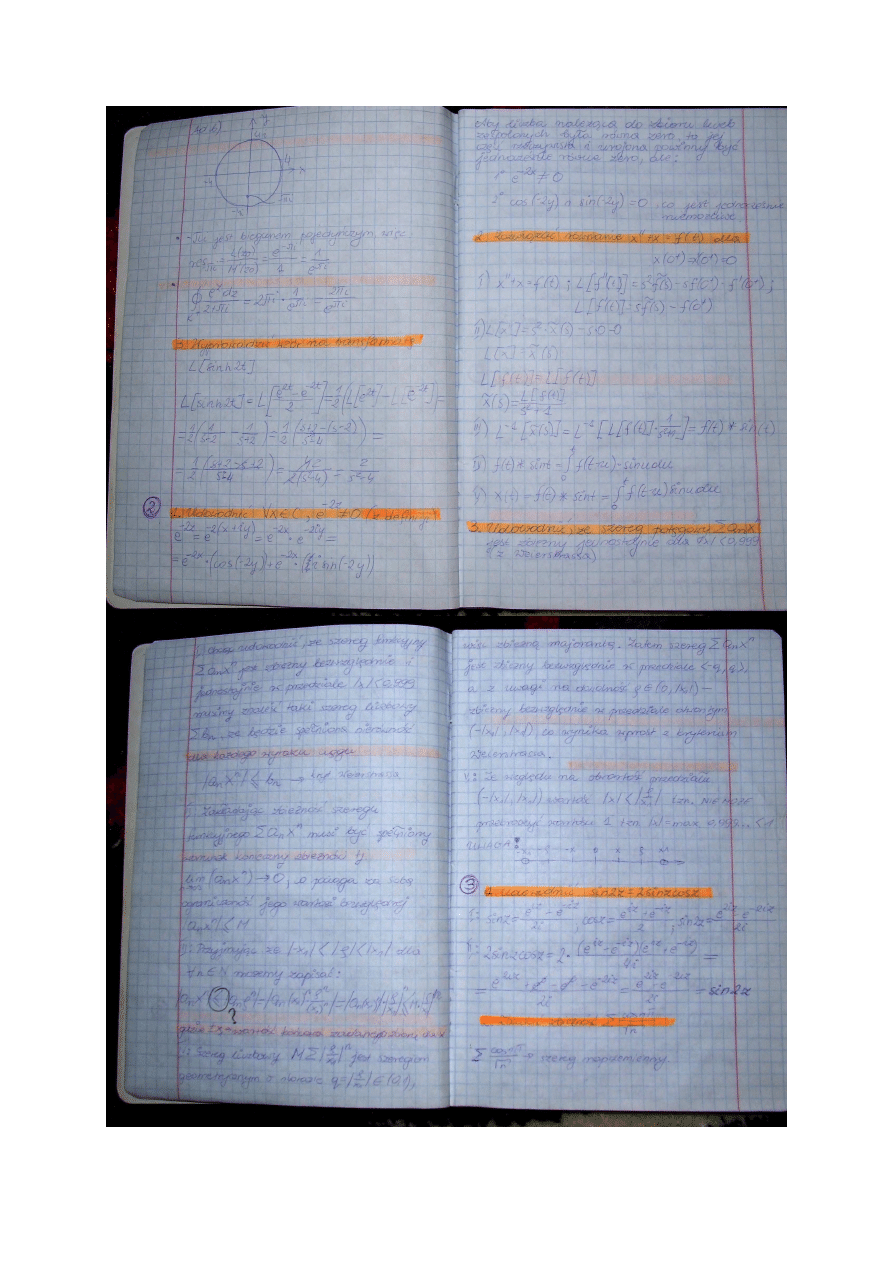 y
4
x
• -πi jest biegunem pojedynczym więc
res₋πi = L(z₀)/M'(z₀) = e^-πi/1 = 1/e^πi
• ∮ e^z dz/z+πi = 2πi · 1/e^πi = 2πi/e^πi
3. Wyprowadzić wzór na transformatę
L[sinh2t]
L[sinh2t] = L[e^2t - e^-2t/2] = 1/2(L[e^2t] - L[e^-2t]) =
= 1/2(1/s-2 - 1/s+2) = 1/2(s+2-(s-2)/s²-4) =
= 1/2(s+2-s+2/s²-4) = 4/2(s²-4) = 2/s²-4
② 1. Udowodnić e^-2z ≠ 0 (z definicji)
e^-2z = e^-2(x+iy) = e^-2x · e^-2iy =
= e^-2x · (cos(-2y)) + e^-2x · (i sin(-2y))
Aby liczba należąca do zbioru liczb
zespolonych była równa zero, to jej
część rzeczywista i urojona powinny być
jednocześnie równe zero, ale:
1° e^-2x ≠ 0
2° cos(-2y) ∧ sin(-2y) = 0 co jest jednocześnie
niemożliwe
2. Rozwiązać równanie x''+x = f(t) dla
x(0⁺) = x'(0⁺) = 0
i) x''+x = f(t) ; L[f''(t)] = s²f̃(s) - sf(0⁺) - f'(0⁺) ;
L[f'(t)] = sf̃(s) - f(0⁺)
ii) L[x''] = s² · x̃(s) - s·0 - 0
L[x] = x̃(s)
L[f(t)] = L[f(t)]
x̃(s) = L[f(t)]/s²+1
iii) L⁻¹[x̃(s)] = L⁻¹[L[f(t)] · 1/s²+1] = f(t) * sin(t)
f(t) * sint = ∫₀^t f(t-u) · sinu du
x(t) = f(t) * sint = ∫₀^t f(t-u) sinu du
3. Udowodnić, że szereg potęgowy Σaₙxⁿ
jest zbieżny jednostajnie dla |x| < 0,999
(z Weierstrassa)
Chcąc udowodnić, że szereg funkcyjny
Σaₙxⁿ jest zbieżny bezwzględnie i
jednostajnie w przedziale |x| < 0,999
musimy znaleźć taki szereg liczbowy
Σbₙ, że będzie spełniona nierówność
dla każdego wyrazu ciągu
|aₙxⁿ| ≤ bₙ → kryt. Weierstrassa
Zakładając zbieżność szeregu
funkcyjnego Σaₙxⁿ musi być spełniony
warunek konieczny zbieżności tj.
lim(aₙxⁿ) → 0, co pociąga za sobą
ograniczoność jego wartości bezwzględnej
|aₙxⁿ| ≤ M
Przyjmując, że |-x₀| < |q| < |x₀| dla
∀n∈N możemy zapisać:
?
Szereg liczbowy MΣ|q/x₀|ⁿ jest szeregiem
geometrycznym o ilorazie q=|q/x₀| ∈ (0,1),
więc zbieżną majorantą. Zatem szereg Σaₙxⁿ
jest zbieżny bezwzględnie w przedziale <-q,q>,
a z uwagi na dowolność q∈(0,|x₀|) –
zbieżny bezwzględnie w przedziale otwartym
(-|x₀|,|x₀|) co wynika wprost z kryterium
Weierstrassa.
Ze względu na otwartość przedziału
(-|x₀|,|x₀|) NIE MOŻE
przekroczyć wartości 1 tzn |x| = max 0,999.. < 1
UWAGA!
③ 1. Udowodnić sin2z = 2sinzcosz
sinz = e^iz - e^-iz/2i , cosz = e^iz + e^-iz/2 , sin2z = e^2iz - e^-2iz/2i
2sinzcosz = 2 · (e^iz - e^-iz)(e^iz + e^-iz)/4i =
= e^2iz + e⁰ - e⁰ - e^-2iz/2i = e^2iz - e^-2iz/2i = sin2z
Σ cosnπ/√n → szereg naprzemienny